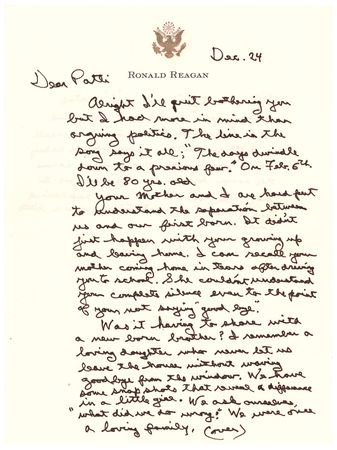 Dec. 24
RONALD REAGAN
Dear Patti
Alright I'll quit bothering you
but I had more in mind than
arguing politics. The line in the
song says it all; "The days dwindle
down to a precious few." On Feb. 6th
I'll be 80 yrs. old
Your Mother and I are hard put
to understand the separation between
us and our first born. It didn't
just happen with your growing up
and leaving home. I can recall your
mother coming home in tears after driving
you to school. She couldn't understand
your complete silence even to the point
of your not saying good bye".
Was it having to share with
a new born brother? I remember a
loving daughter who never let us
leave the house without waving
goodbye from the window. We have
some snap shots that reveal a difference
in a little girl. We ask ourselves
"what did we do wrong." We were once
a loving family. (over)